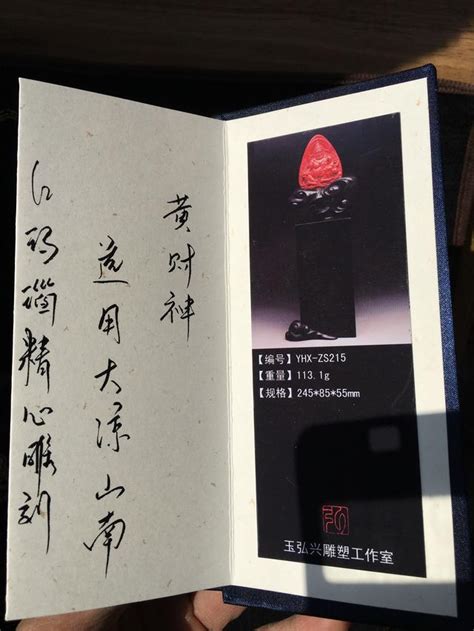 黄财神
选用大凉山南
红玛瑙精心雕刻
【编号】YHX-ZS215
【重量】113.1g
【规格】245*85*55mm
玉弘兴雕塑工作室